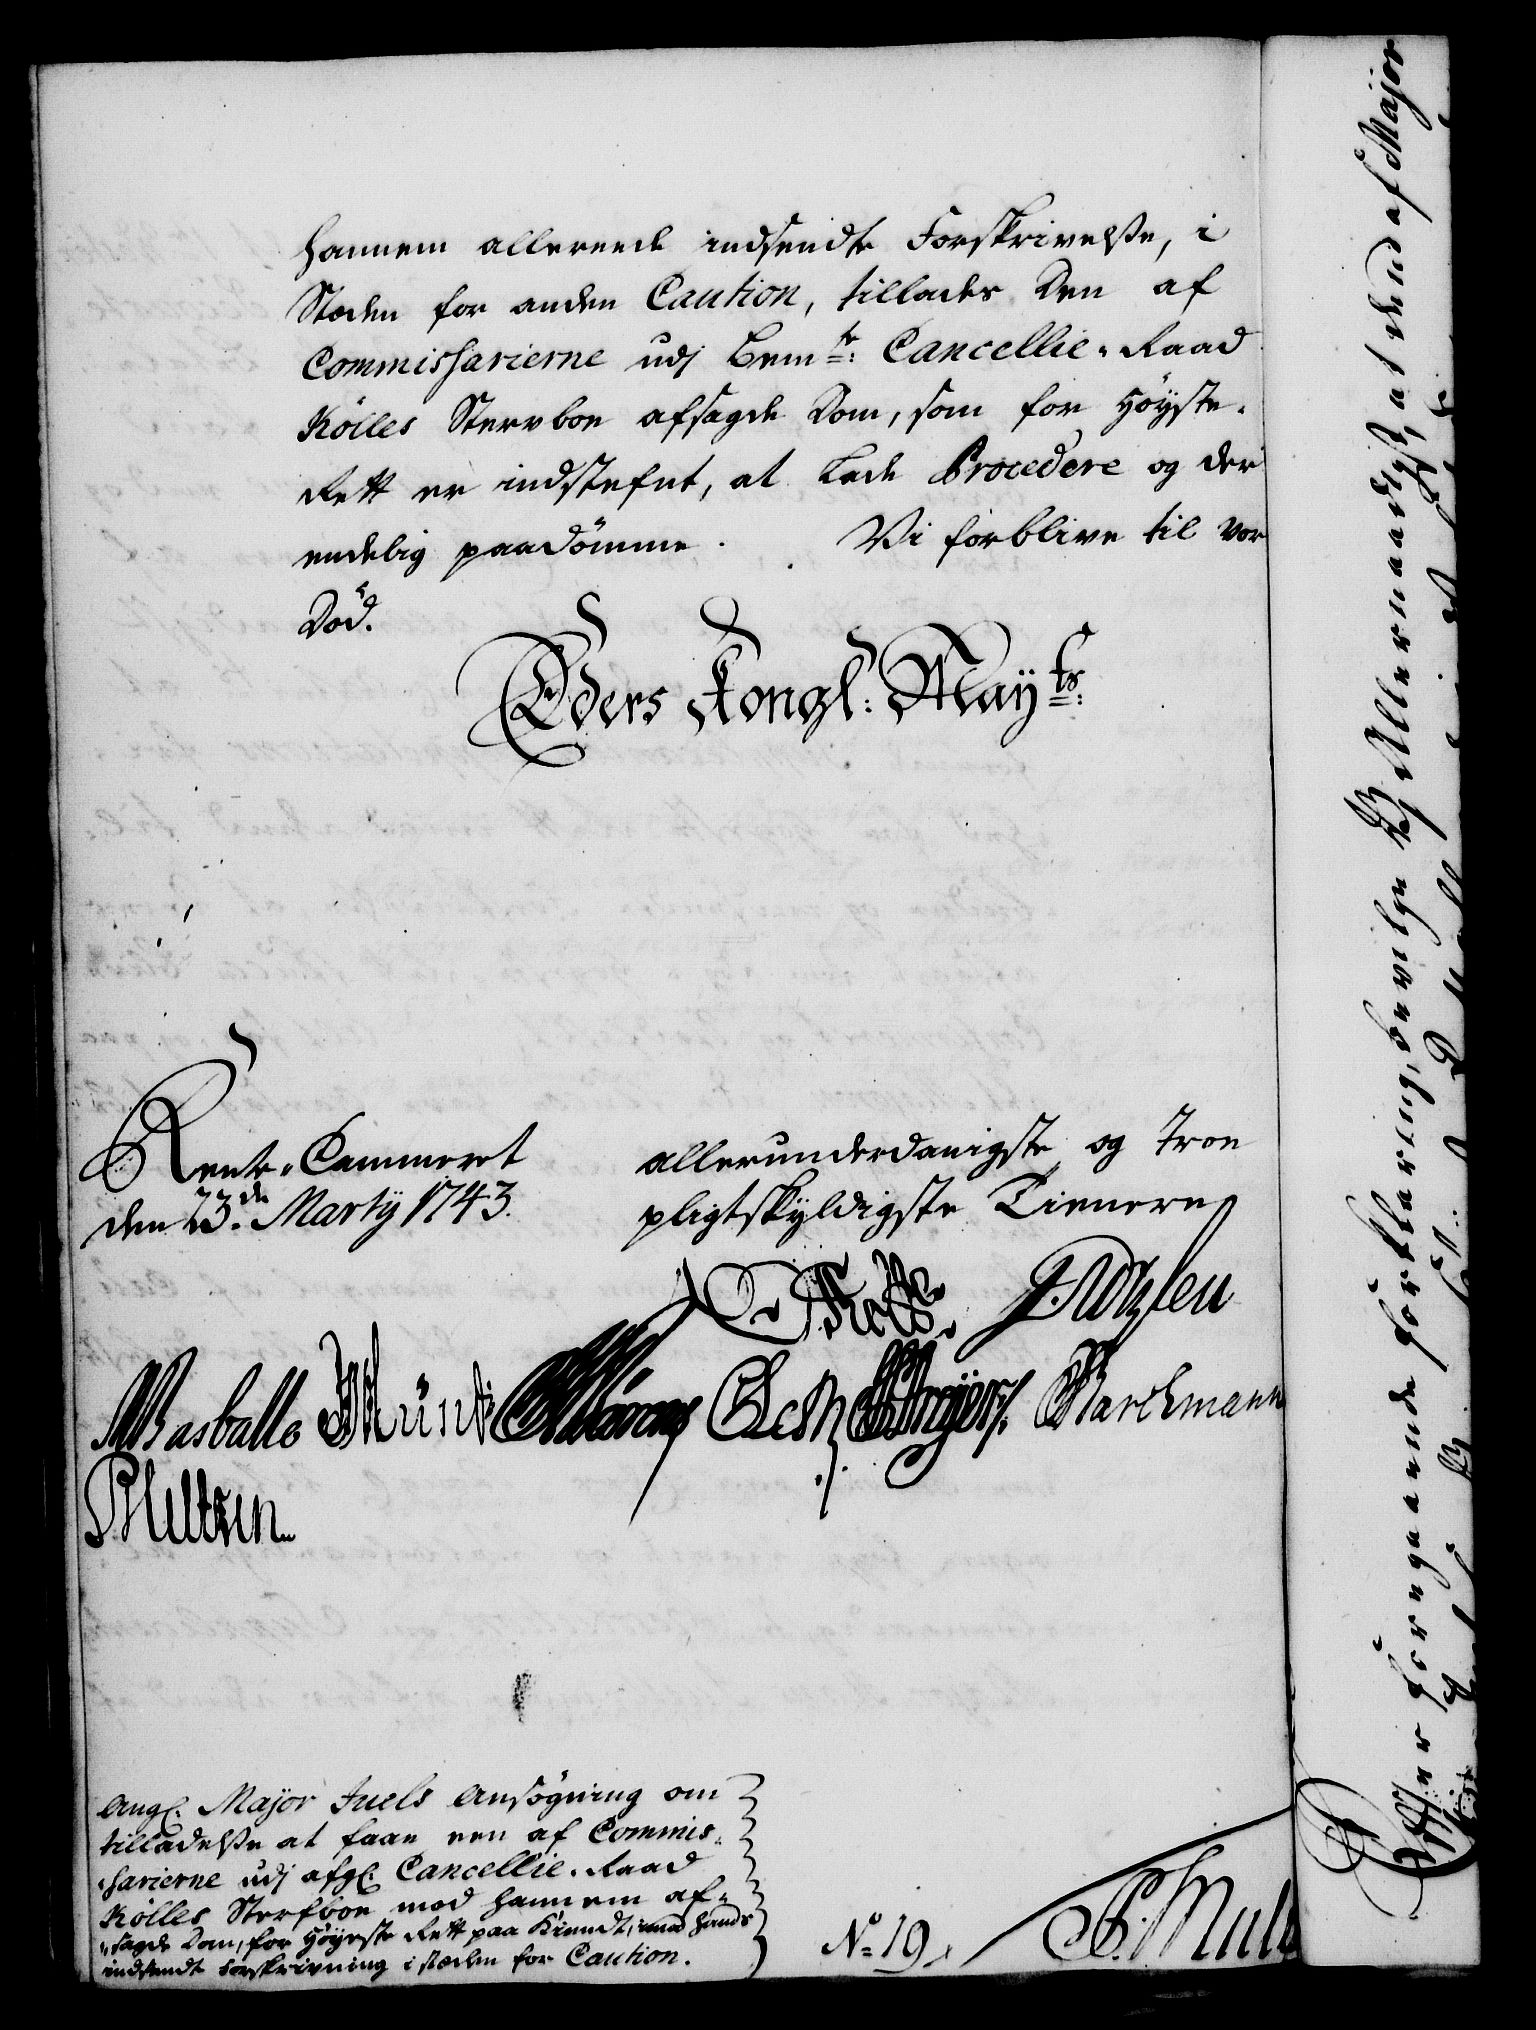 hannem allereede indsendte Forskrivelse, i
Stæden for anden Caution, tillades den af
Commissarierne udj bem.te Cancellie-Raad
Kölles Stervboe afsagde Dom, som for Höyste-
Rett er indstefnt, at lade Procedere og der
endelig paadömme. Vi forblive til vor
Död.
Eders Kongl: May.ts:
Rente-Cammeret
den 23.de Martÿ 1743.
allerunderdanigste og Troe
pligtskyldigste Tienere
Barchmann
Ang: Major Juels Ansögning om
tilladelse at faae een af Commis-
sarierne udj afg: Cancellie-Raad
Kölles Sterfboe mod hannem af-
sagde Dom, for Höyeste Rett paa Kiendt, mod hands
indsendte forskrivning i stæden for Caution.
No 19
Efter foregaaende forklaring, bevilge Vj Allernaadigst, atend af Major